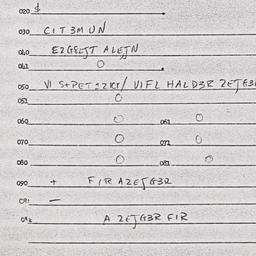 020 $
030 CIT3MUN
040 EZGSLJT ALEJN
041 O
050 VI S+PET:2KT/ VIFL HALD3R 2EJG3
051 O
060 O 061 O
070 O 071 O
080 O 081 O
090 + FIR AZEJG3R
091 —
092 A 2EJG3R FIR